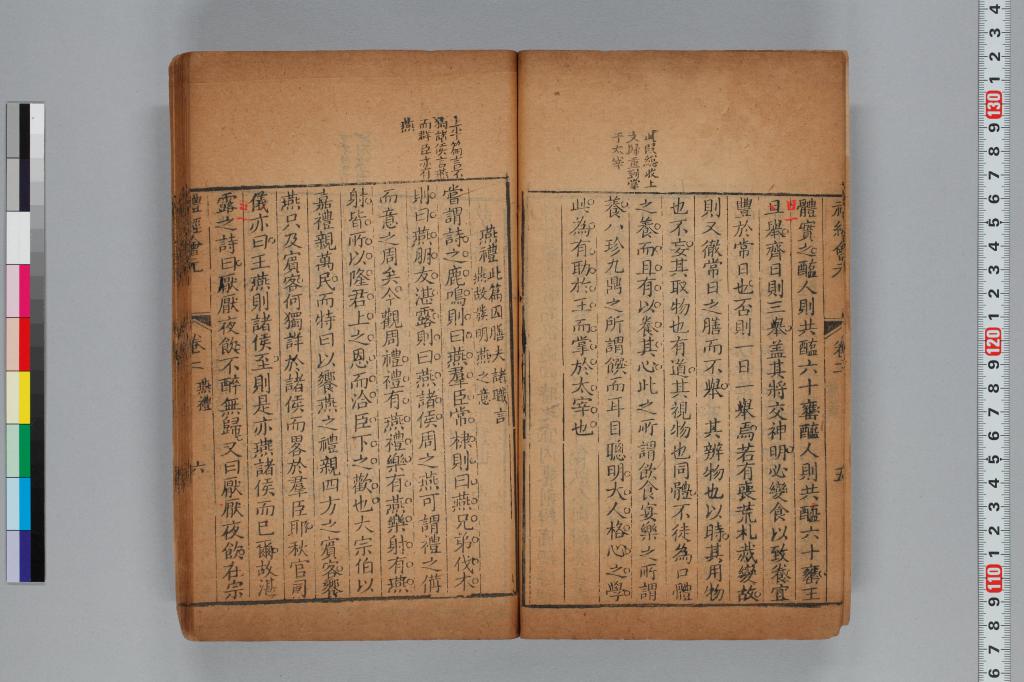 體實之醢人則共醢六十罋醯人則共醯六十罋王
日舉齊日則三舉盖其將交神明必變食以致養宜
豐於常日也否則一日一舉焉若有喪荒札烖變故
則又徹常日之膳而不舉其辨物也以時其用物
也不妄其取物也有道其視物也同體不徒為口體
之養而且有以養其心此之所謂飲食宴樂之所謂
養八珍九鼎之所謂饌而耳目聰明大人格心之學
此為有助於王而掌於太宰也
此段總收上
文歸重到掌
于太宰
卷二
五
燕禮此篇因膳夫諸職言
燕故發明燕之意
嘗謂詩之鹿鳴則曰燕羣臣常棣則曰燕兄弟伐木
則曰燕朋友湛露則曰燕諸侯周之燕可謂禮之備
而意之周矣今觀周禮禮有燕禮樂有燕樂射有燕
射皆所以隆君上之恩而洽臣下之歡也大宗伯以
嘉禮親萬民而特曰以饗燕之禮親四方之賓客饗
燕只及賓客何獨詳於諸侯而畧於羣臣耶秋官司
儀亦曰王燕則諸侯至則是亦燕諸侯而已爾故湛
露之詩曰厭厭夜飲不醉無歸又曰厭厭夜飲在宗
上半篇言不
獨諸侯言燕
而群臣亦有
燕
禮經會元
卷二
燕禮
六